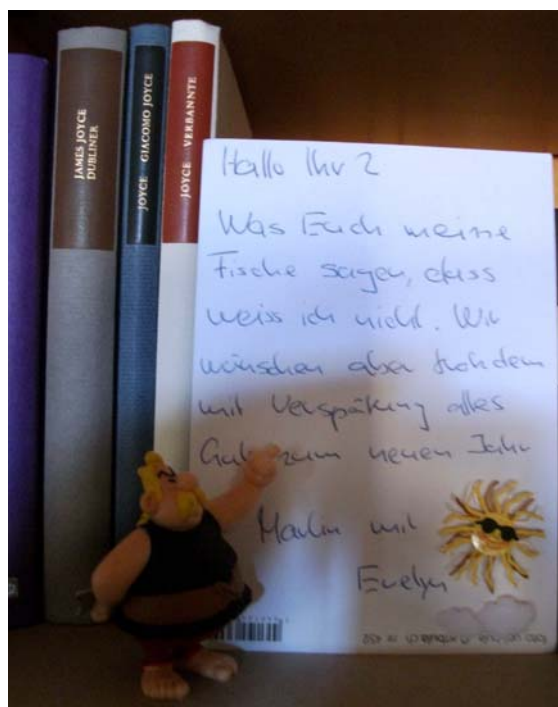 JAMES JOYCE
DUBLINER
JOYCE GIACOMO JOYCE
JOYCE VERBANNTE
Hallo Ihr 2
Was Euch meine
Fische sagen, dass
weiss ich nicht. Wir
wünschen aber trotzdem
mit Verspätung alles
Gute zum neuen Jahr
mit
Evelyn